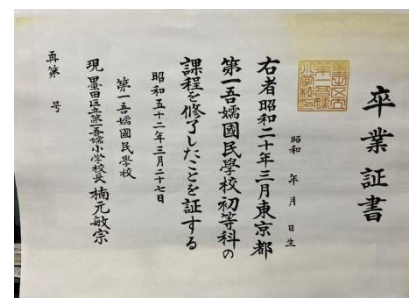 卒業証書
昭和　年　月　日生
右者昭和二十年三月東京都
第一吾嬬國民學校初等科の
課程を修了したことを証する
昭和五十二年三月二十七日
第一吾嬬國民學校
現 墨田区立第一吾嬬小学校長 楠元敏宗
再第　号